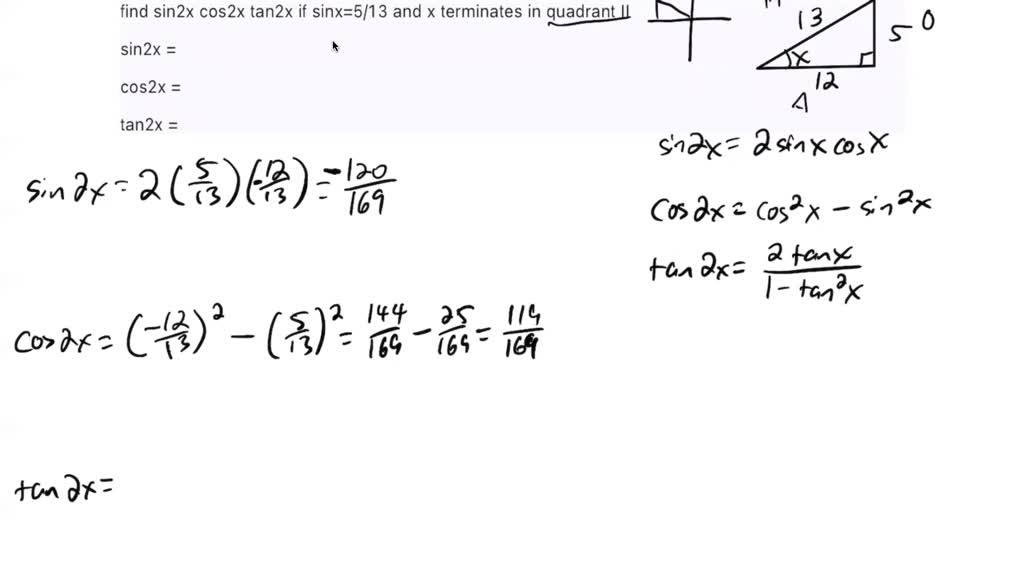 find sin2x cos2x tan2x if sinx=5/13 and x terminates in quadrant II
sin2x =
cos2x =
tan2x =
13
5 O
x
12
A
sin2x = 2 sinx cosx
cos2x = cos²x - sin²x
tan2x = 2 tanx / 1 - tan²x
sin2x = 2 (5/13) (-12/13) = -120/169
cos2x = (-12/13)² - (5/13)² = 144/169 - 25/169 = 119/169
tan2x =